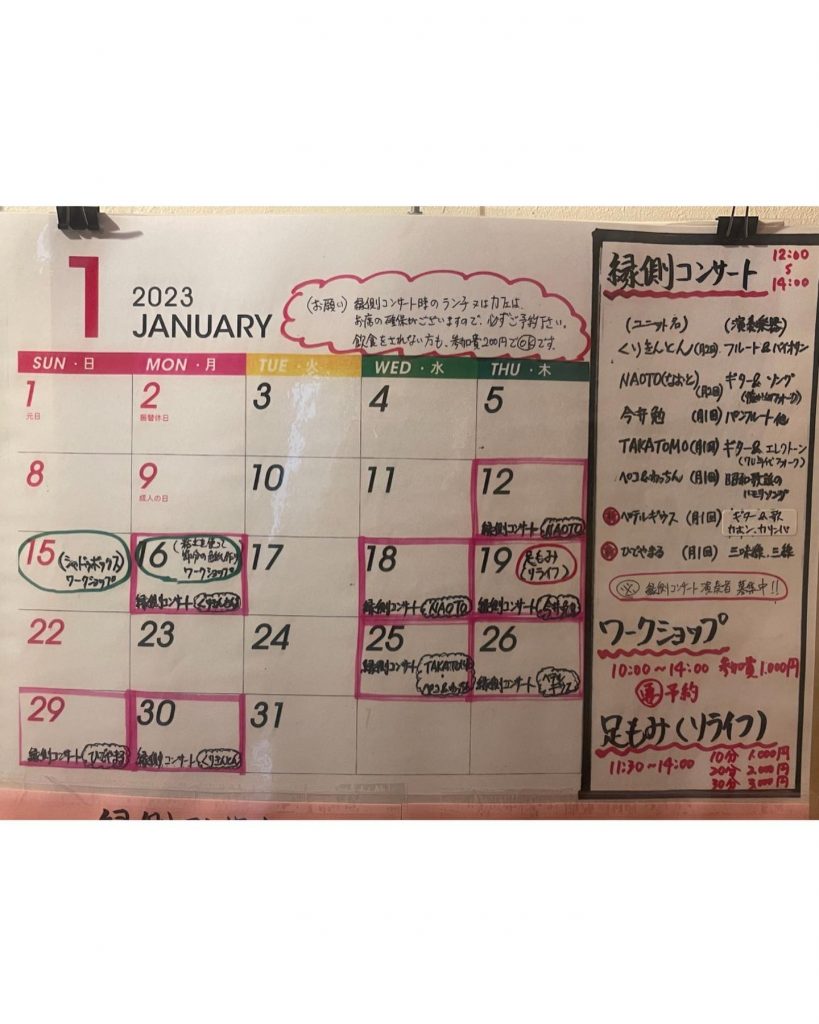 1
2023
JANUARY
(お願い) 縁側コンサート時のランチ又はカフェは、
お席の確保がございますので、必ずご予約下さい。
飲食をされない方も、参加費200円でOKです。
SUN・日 MON・月 TUE・火 WED・水 THU・木
1 2 3 4 5
元日 振替休日
8 9 10 11 12
成人の日
縁側コンサート NAOTO
15 (シャドウボックス) ワークショップ
16 ワークショップ
縁側コンサート くりきんとん
17 18 19 足もみ (リライフ)
縁側コンサート NAOTO
縁側コンサート 今井勉
22 23 24 25 26
縁側コンサート TAKATOMO ・ ペコ&
縁側コンサート ベテルギウス
29 30 31
縁側コンサート ひでやまる
縁側コンサート くりきんとん
縁側コンサート 12:00
〜
14:00
(ユニット名) (演奏楽器)
くりきんとん(月2回) フルート&バイオリン
NAOTO(なおと) (月2回) ギター&ソング
今井勉 (月1回) パンフルート他
TAKATOMO (月1回) ギター&エレクトーン
ペコ&わっちん (月1回) 昭和歌謡の
ハモリソング
新 ベテルギウス (月1回) ギター&歌
カホン、カリンバ
新 ひでやまる (月1回) 三味線、三線
※ 縁側コンサート演奏者募集中!!
ワークショップ
10:00〜14:00 参加費1.000円
要予約
足もみ(リライフ)
11:30〜14:00 10分 1.000円
20分 2.000円
30分 3.000円